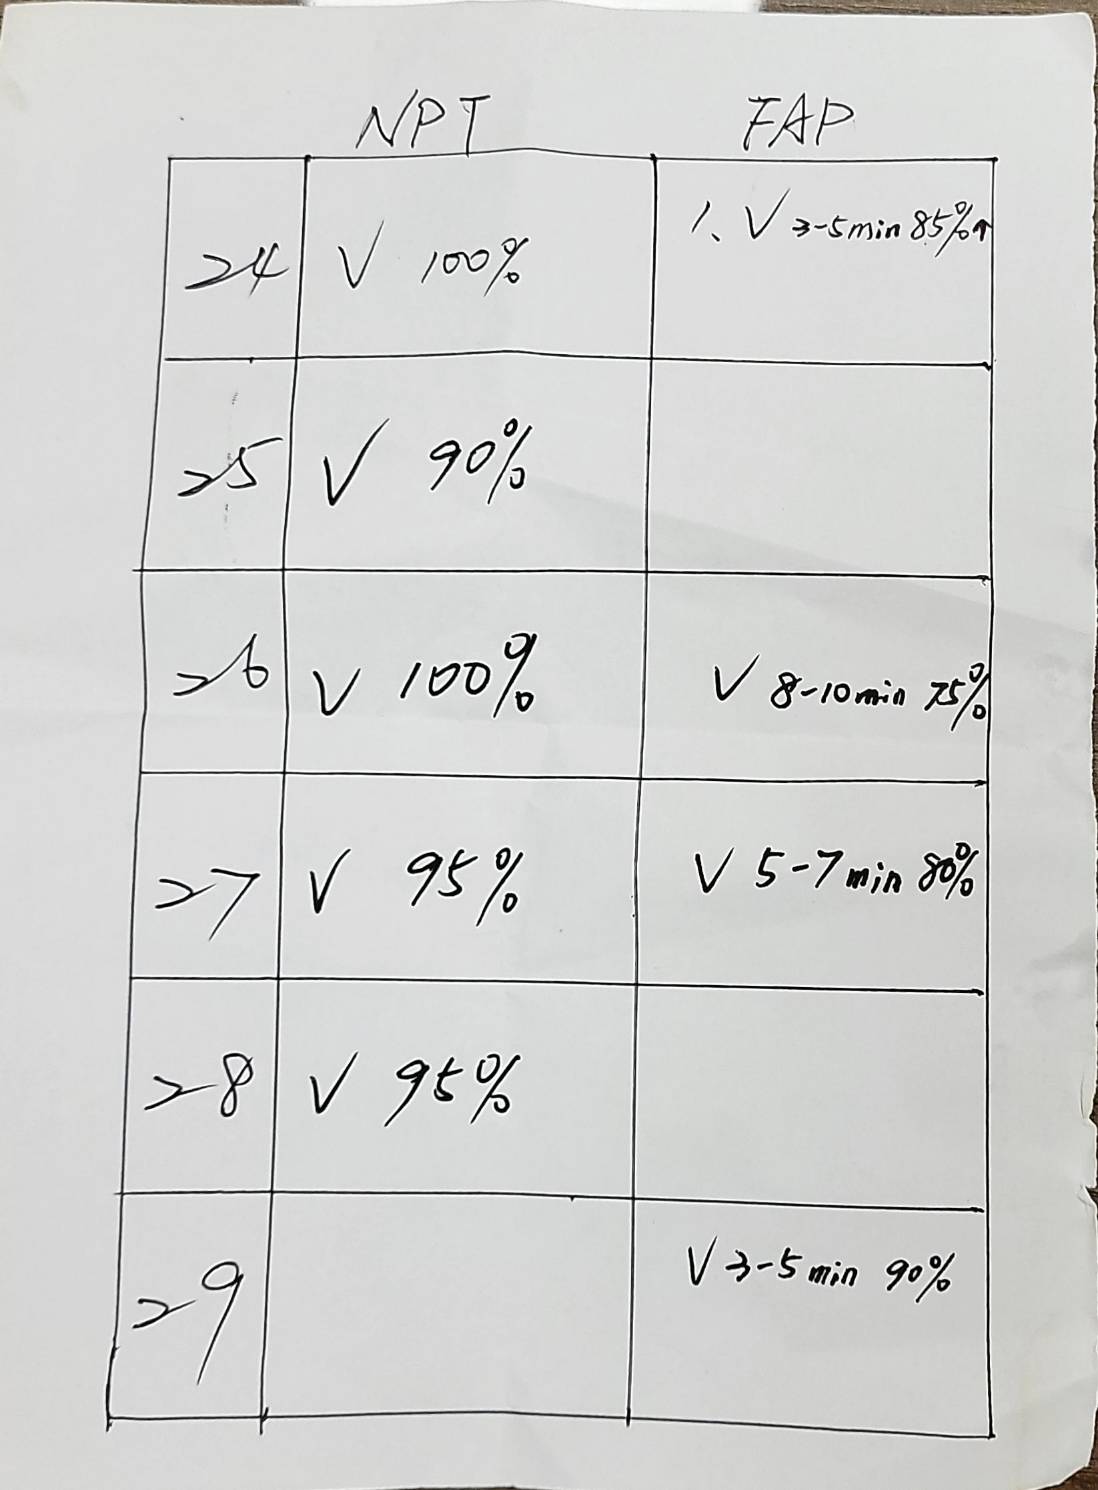 NPT FAP
24 V 100% 1、V 3-5min 85%↑
25 V 90%
26 V 100% V 8-10min 75%
27 V 95% V 5-7min 80%
28 V 95%
29 V 3-5min 90%